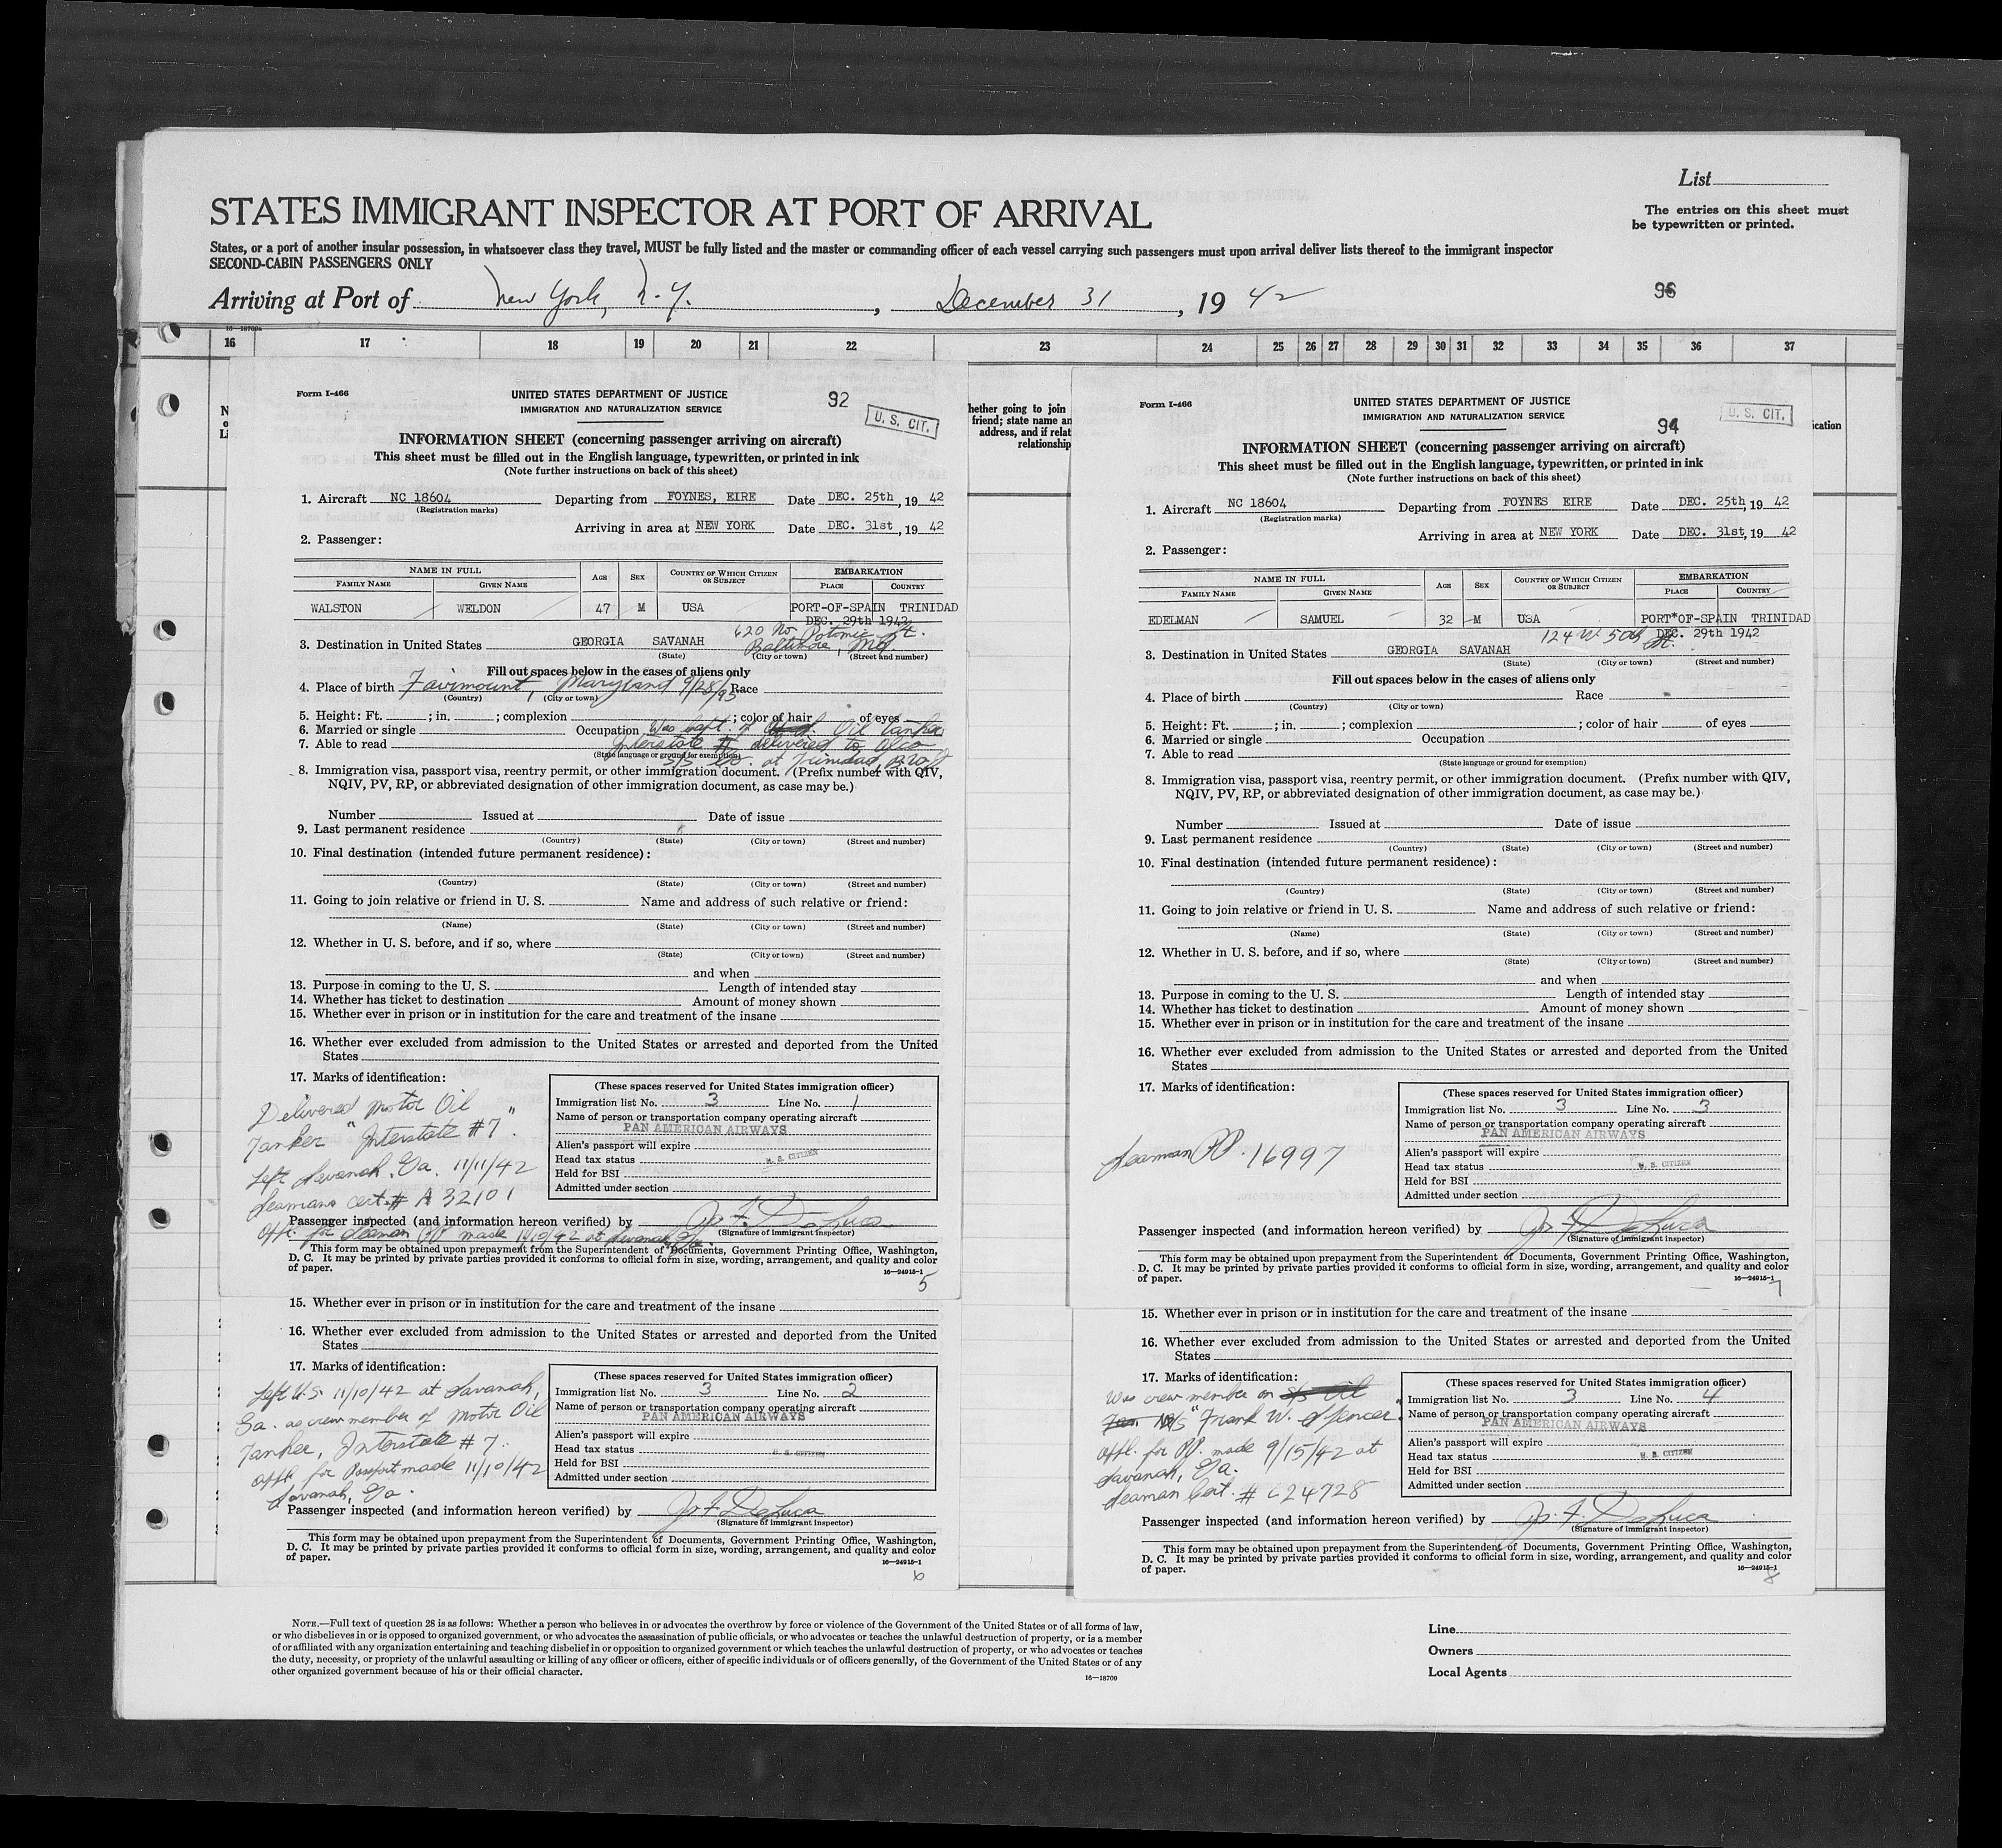 List
STATES IMMIGRANT INSPECTOR AT PORT OF ARRIVAL
The entries on this sheet must
be typewritten or printed.
States, or a port of another insular possession, in whatsoever class they travel, MUST be fully listed and the master or commanding officer of each vessel carrying such passengers must upon arrival deliver lists thereof to the immigrant inspector
SECOND-CABIN PASSENGERS ONLY
Arriving at Port of New York, N.Y., December 31, 1942
96
16—18709a
16 17 18 19 20 21 22 23 24 25 26 27 28 29 30 31 32 33 34 35 36 37
hether going to join
friend; state name an
address, and if relat
relationship
ication
Form I-466
UNITED STATES DEPARTMENT OF JUSTICE
92
IMMIGRATION AND NATURALIZATION SERVICE
U. S. CIT.
INFORMATION SHEET (concerning passenger arriving on aircraft)
This sheet must be filled out in the English language, typewritten, or printed in ink
(Note further instructions on back of this sheet)
1. Aircraft NC 18604 Departing from FOYNES, EIRE Date DEC. 25th, 19 42
(Registration marks)
Arriving in area at NEW YORK Date DEC. 31st, 19 42
2. Passenger:
NAME IN FULL AGE SEX COUNTRY OF WHICH CITIZEN OR SUBJECT EMBARKATION
FAMILY NAME GIVEN NAME PLACE COUNTRY
WALSTON WELDON 47 M USA PORT-OF-SPAIN TRINIDAD
DEC. 29th 1942
620 No. Potomic St.
3. Destination in United States GEORGIA SAVANAH Baltimore, Md.
(State) (City or town) (Street and number)
Fill out spaces below in the cases of aliens only
4. Place of birth Fairmount, Maryland 9/28/95 Race
(Country) (City or town)
5. Height: Ft. ; in. ; complexion ; color of hair of eyes
6. Married or single Occupation Was Capt. of Oil Tanker
7. Able to read Interstate # delivered to Alco
(State language or ground for exemption)
S/S Co. at Trinidad,
8. Immigration visa, passport visa, reentry permit, or other immigration document. (Prefix number with QIV,
NQIV, PV, RP, or abbreviated designation of other immigration document, as case may be.)
Number Issued at Date of issue
9. Last permanent residence
(Country) (State) (City or town) (Street and number)
10. Final destination (intended future permanent residence):
(Country) (State) (City or town) (Street and number)
11. Going to join relative or friend in U. S. Name and address of such relative or friend:
(Name) (State) (City or town) (Street and number)
12. Whether in U. S. before, and if so, where
(State) (City or town) (Street and number)
and when
13. Purpose in coming to the U. S. Length of intended stay
14. Whether has ticket to destination Amount of money shown
15. Whether ever in prison or in institution for the care and treatment of the insane
16. Whether ever excluded from admission to the United States or arrested and deported from the United
States
17. Marks of identification:
Delivered Motor Oil
Tanker "Interstate #7"
Left Savanah, Ga. 11/11/42
Seamans cert. # A 32101
(These spaces reserved for United States immigration officer)
Immigration list No. 3 Line No. 1
Name of person or transportation company operating aircraft
PAN AMERICAN AIRWAYS
Alien's passport will expire
Head tax status U. S. CITIZEN
Held for BSI
Admitted under section
Passenger inspected (and information hereon verified) by Jos. F. DeLuca
(Signature of immigrant inspector)
Appl. for Seaman PP made 11/10/42 at Savanah, Ga.
This form may be obtained upon prepayment from the Superintendent of Documents, Government Printing Office, Washington,
D. C. It may be printed by private parties provided it conforms to official form in size, wording, arrangement, and quality and color
of paper.
16—24915-1
5
15. Whether ever in prison or in institution for the care and treatment of the insane
16. Whether ever excluded from admission to the United States or arrested and deported from the United
States
17. Marks of identification:
Left U.S. 11/10/42 at Savanah,
Ga. as crew member of Motor Oil
Tanker, Interstate #7.
Appl. for Passport made 11/10/42
Savanah, Ga.
(These spaces reserved for United States immigration officer)
Immigration list No. 3 Line No. 2
Name of person or transportation company operating aircraft
PAN AMERICAN AIRWAYS
Alien's passport will expire
Head tax status U. S. CITIZEN
Held for BSI
Admitted under section
Passenger inspected (and information hereon verified) by Jos. F. DeLuca
(Signature of immigrant inspector)
This form may be obtained upon prepayment from the Superintendent of Documents, Government Printing Office, Washington,
D. C. It may be printed by private parties provided it conforms to official form in size, wording, arrangement, and quality and color
of paper.
16—24915-1
6
Form I-466
UNITED STATES DEPARTMENT OF JUSTICE
U. S. CIT.
IMMIGRATION AND NATURALIZATION SERVICE
94
INFORMATION SHEET (concerning passenger arriving on aircraft)
This sheet must be filled out in the English language, typewritten, or printed in ink
(Note further instructions on back of this sheet)
1. Aircraft NC 18604 Departing from FOYNES EIRE Date DEC. 25th, 19 42
(Registration marks)
Arriving in area at NEW YORK Date DEC. 31st, 19 42
2. Passenger:
NAME IN FULL AGE SEX COUNTRY OF WHICH CITIZEN OR SUBJECT EMBARKATION
FAMILY NAME GIVEN NAME PLACE COUNTRY
EDELMAN SAMUEL 32 M USA PORT*OF-SPAIN TRINIDAD
124 W. 50th St. DEC. 29th 1942
3. Destination in United States GEORGIA SAVANAH
(State) (City or town) (Street and number)
Fill out spaces below in the cases of aliens only
4. Place of birth Race
(Country) (City or town)
5. Height: Ft. ; in. ; complexion ; color of hair of eyes
6. Married or single Occupation
7. Able to read
(State language or ground for exemption)
8. Immigration visa, passport visa, reentry permit, or other immigration document. (Prefix number with QIV,
NQIV, PV, RP, or abbreviated designation of other immigration document, as case may be.)
Number Issued at Date of issue
9. Last permanent residence
(Country) (State) (City or town) (Street and number)
10. Final destination (intended future permanent residence):
(Country) (State) (City or town) (Street and number)
11. Going to join relative or friend in U. S. Name and address of such relative or friend:
(Name) (State) (City or town) (Street and number)
12. Whether in U. S. before, and if so, where
(State) (City or town) (Street and number)
and when
13. Purpose in coming to the U. S. Length of intended stay
14. Whether has ticket to destination Amount of money shown
15. Whether ever in prison or in institution for the care and treatment of the insane
16. Whether ever excluded from admission to the United States or arrested and deported from the United
States
17. Marks of identification:
Seaman PP. 16997
(These spaces reserved for United States immigration officer)
Immigration list No. 3 Line No. 3
Name of person or transportation company operating aircraft
PAN AMERICAN AIRWAYS
Alien's passport will expire
Head tax status U. S. CITIZEN
Held for BSI
Admitted under section
Passenger inspected (and information hereon verified) by Jos. F. DeLuca
(Signature of immigrant inspector)
This form may be obtained upon prepayment from the Superintendent of Documents, Government Printing Office, Washington,
D. C. It may be printed by private parties provided it conforms to official form in size, wording, arrangement, and quality and color
of paper.
16—24915-1
7
15. Whether ever in prison or in institution for the care and treatment of the insane
16. Whether ever excluded from admission to the United States or arrested and deported from the United
States
17. Marks of identification:
Was crew member on S/S Oil
M/S "Frank W. Spencer"
Appl. for PP. made 9/15/42 at
Savanah, Ga.
Seaman Cert. # C24728
(These spaces reserved for United States immigration officer)
Immigration list No. 3 Line No. 4
Name of person or transportation company operating aircraft
PAN AMERICAN AIRWAYS
Alien's passport will expire
Head tax status U. S. CITIZEN
Held for BSI
Admitted under section
Passenger inspected (and information hereon verified) by Jos. F. DeLuca
(Signature of immigrant inspector)
This form may be obtained upon prepayment from the Superintendent of Documents, Government Printing Office, Washington,
D. C. It may be printed by private parties provided it conforms to official form in size, wording, arrangement, and quality and color
of paper.
16—24915-1
8
NOTE.—Full text of question 28 is as follows: Whether a person who believes in or advocates the overthrow by force or violence of the Government of the United States or of all forms of law,
or who disbelieves in or is opposed to organized government, or who advocates the assassination of public officials, or who advocates or teaches the unlawful destruction of property, or is a member
of or affiliated with any organization entertaining and teaching disbelief in or opposition to organized government or which teaches the unlawful destruction of property, or who advocates or teaches
the duty, necessity, or propriety of the unlawful assaulting or killing of any officer or officers, either of specific individuals or of officers generally, of the Government of the United States or of any
other organized government because of his or their official character.
16—18709
Line
Owners
Local Agents